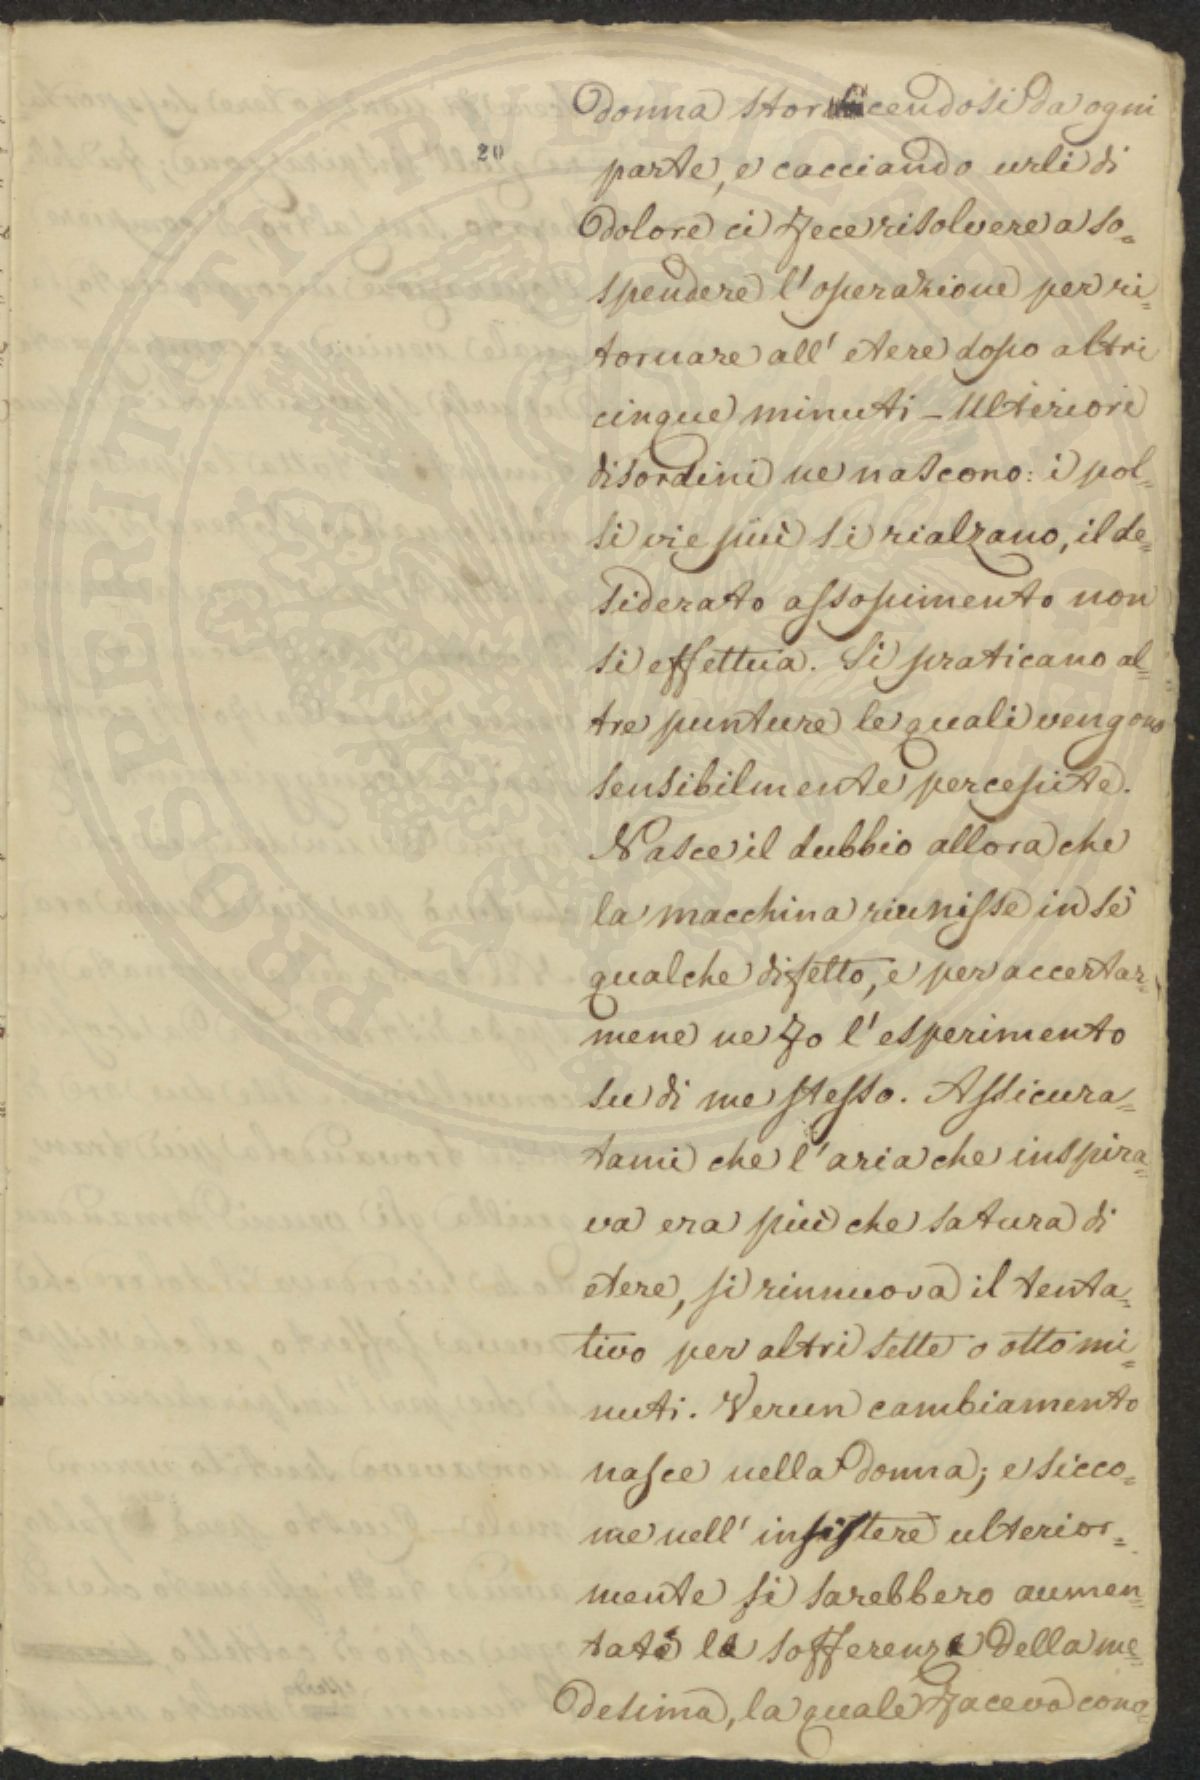 20
donna storcendosi da ogni
parte, e cacciando urli di
dolore ci fece risolvere a so=
spendere l'operazione per ri=
tornare all'etere dopo altri
cinque minuti – Ulteriori
disordini ne nascono: i pol=
si vie più si rialzano, il de=
siderato assopimento non
si effettua. Si praticano al=
tre punture le quali vengono
sensibilmente percepite.
Nasce il dubbio allora che
la macchina riunisse in sè
qualche difetto, e per accertar=
mene ne fo l'esperimento
su di me stesso. Assicura=
tami che l'aria che inspira=
va era più che satura di
etere, si rinnuova il tenta=
tivo per altri sette o otto mi=
nuti. Verun cambiamento
nasce nella donna; e sicco=
me nell'insistere ulterior=
mente si sarebbero aumen=
tate le sofferenze della me=
desima, la quale faceva cono=
PROSPERITATI PVBLICAE